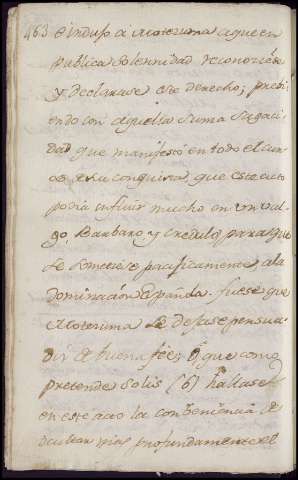 463 è indujo á Motezuma á que en
publica Solennidad reconociese
y declarase este derecho, previ-
endo con aquella Suma Sagaci-
dad que manifestó en todo el cur-
so de su conquista, que este acto
podia influir mucho en un vul-
go, Barbaro, y credulo, para que
se sometiese pacificamente, á la
dominacion Española. fuese que
Motezuma se dejase persua-
dir de buena fée; ó que como
pretende Solis (6) hallase
en este acto la conbeniencia de
ocultar mas profundamente el